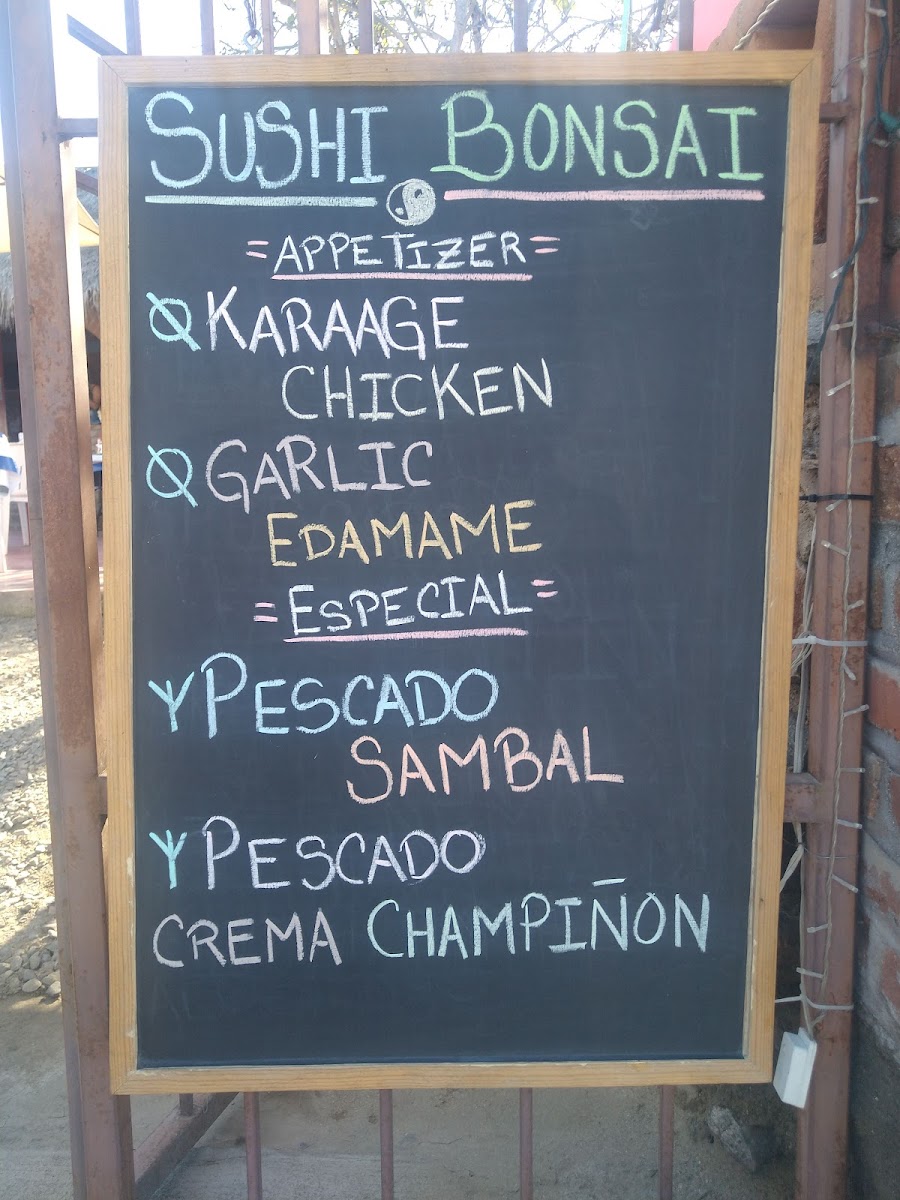 SUSHI BONSAI
=APPETIZER=
KARAAGE
CHICKEN
GARLIC
EDAMAME
=ESPECIAL=
PESCADO
SAMBAL
PESCADO
CREMA CHAMPIÑON